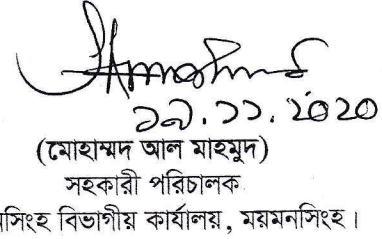 ১৯.১১.২০২০
(মোহাম্মদ আল মাহমুদ)
সহকারী পরিচালক
নসিংহ বিভাগীয় কার্যালয়, ময়মনসিংহ।